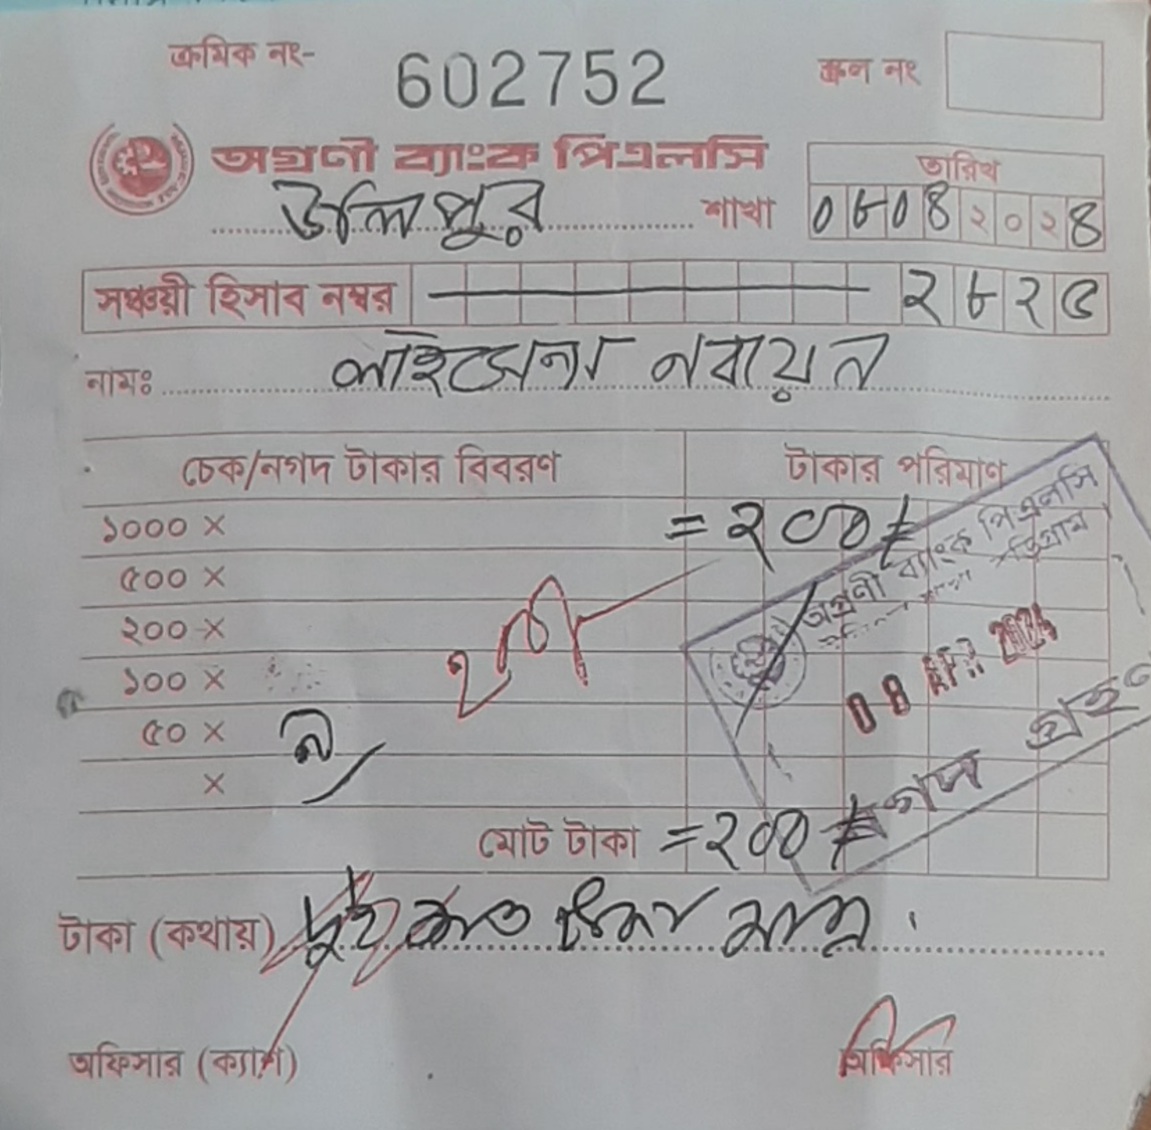 ক্রমিক নং- 602752 স্ক্রল নং
অগ্রণী ব্যাংক পিএলসি
তারিখ
উলিপুর শাখা ০৮০৪২০২৪
সঞ্চয়ী হিসাব নম্বর ২৮২৫
নামঃ লাইসেন্স নবায়ন
চেক/নগদ টাকার বিবরণ টাকার পরিমাণ
১০০০ × =২০০/=
৫০০ ×
২০০ ×
১০০ ×
৫০ ×
×
অগ্রণী ব্যাংক পিএলসি
কুড়িগ্রাম
08 APR 2024
নগদ গ্রহণ
মোট টাকা =২০০/=
টাকা (কথায়) দুই শত টাকা মাত্র।
অফিসার (ক্যাশ) অফিসার